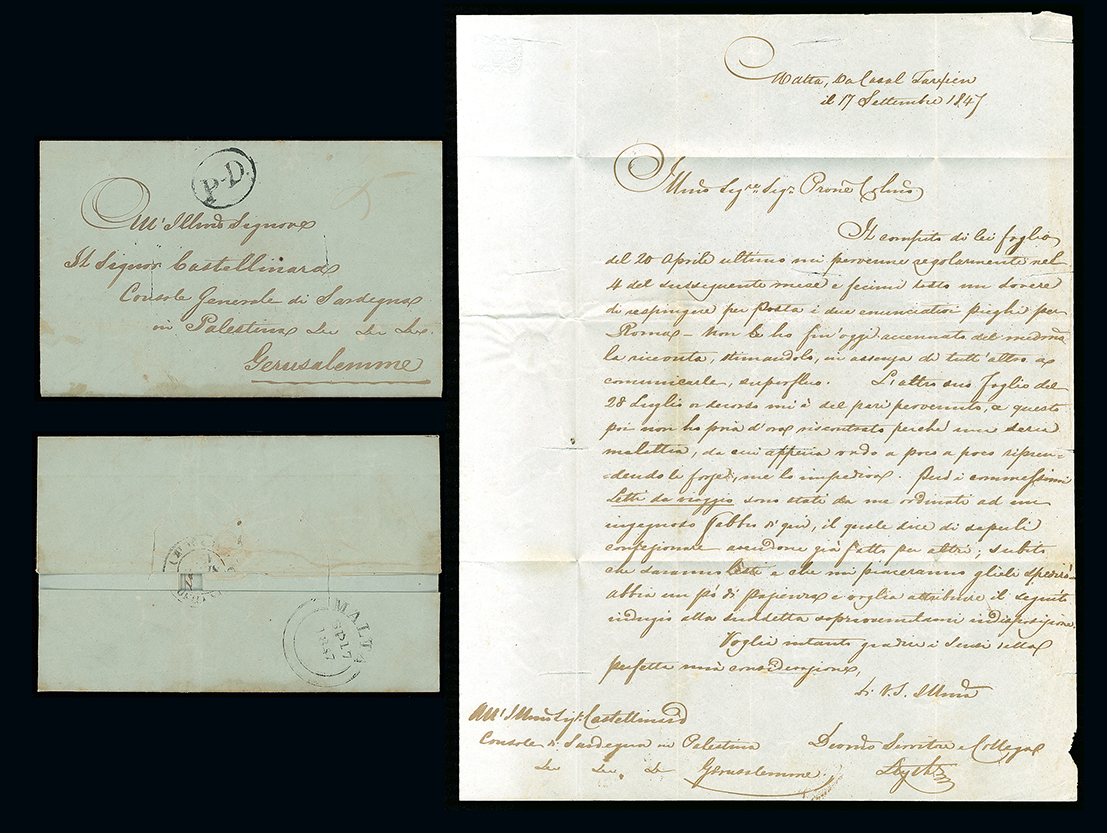 P.D.
All' Illmo Signore
Il Signor Castellinard
Console Generale di Sardegna
in Palestina &c &c &c.
Gerusalemme
MALTA
SP 17
1847
Malta, Da Casal Tarxien
il 17 Settembre 1847
Illmo Sigre Sigr Prone Colmo
Il compito di lei foglio
del 20 Aprile ultimo mi pervenne regolarmente nel
4 del susseguente mese e fecimi tosto un dovere
di respingere per Posta i due enunciativi pieghi per
Roma – Non Le ho fin'oggi accennato del medmo
la ricevuta, stimandolo, in assenza di tutt'altro a
comunicarle, superfluo. L'altro suo foglio del
28 Luglio or decorso mi è del pari pervenuto, a questo
poi non ho pria d'ora riscontrato perchè una seria
malattia, da cui appena vado a poco a poco ripren-
dendo le forze, me lo impediva. Però i commessimi
Letti da viaggio sono stati da me ordinati ad un
ingegnoso fabbro di qui, il quale dice di saperli
confezionare avendone già fatto per altri, subito
che saranno e che mi piaceranno glieli spedirò
abbia un pò di pazienza e voglia attribuire il seguito
indugio alla suddetta sopravvenutami indisposizione.
Voglia intanto gradire i sensi della
perfetta mia considerazione,
Di V.S. Illma
All' Illmo Sigr Castellinard
Console di Sardegna in Palestina
&c &c. &c Gerusalemme.
Devmo Servitore e Collega